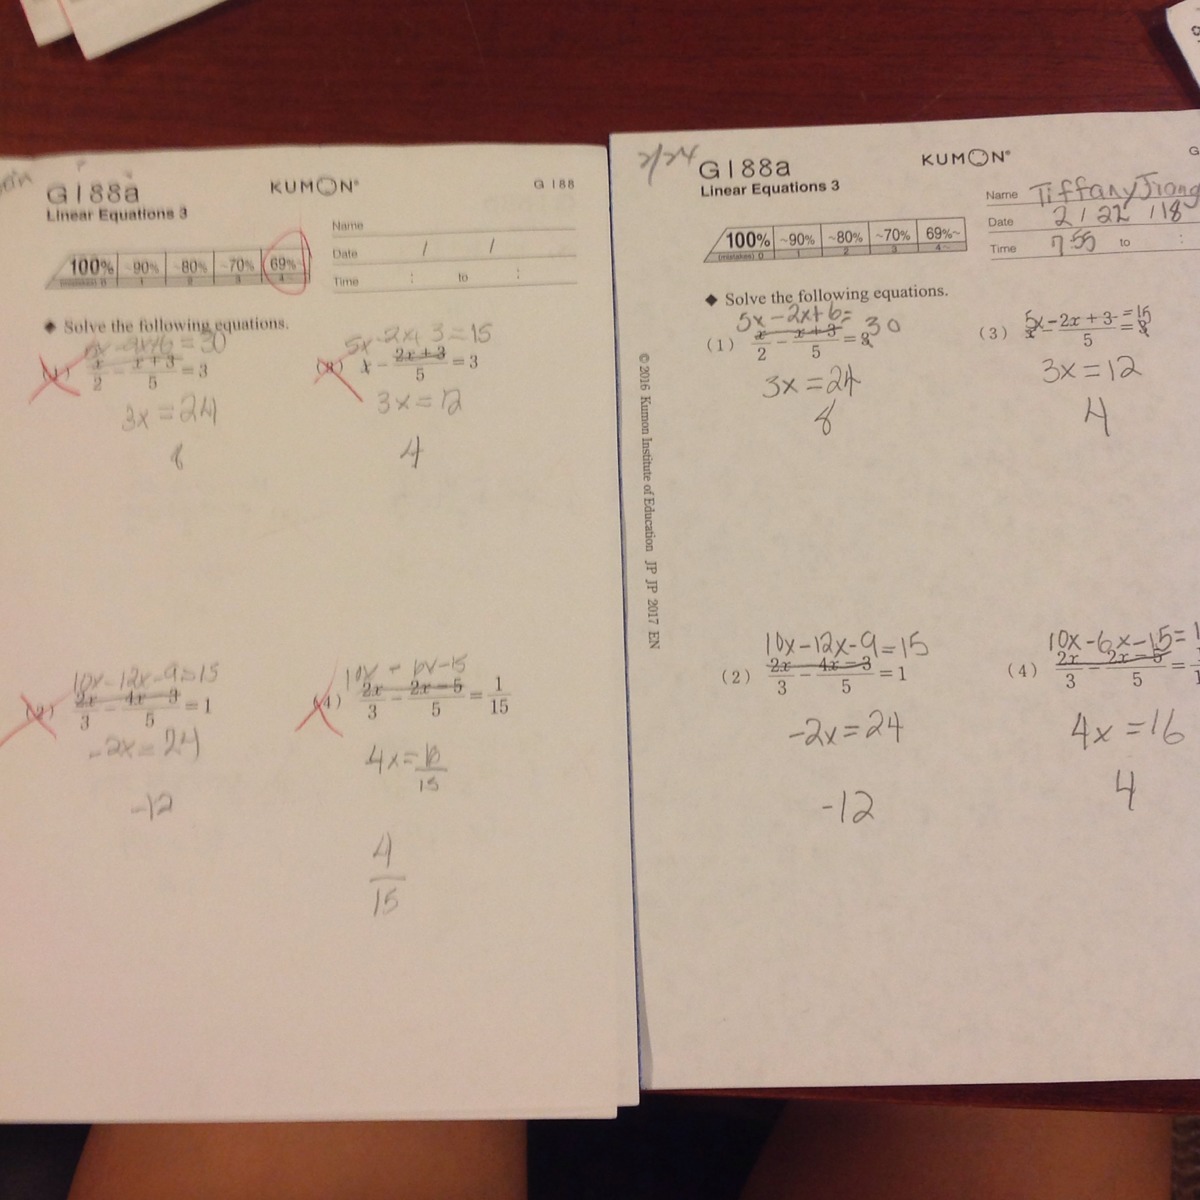 G188a
KUMON
G 188
Linear Equations 3
Name
Date / /
Time : to :
100% ~90% ~80% ~70% 69%~
(mistakes) 0 1 2 3 4~
◆ Solve the following equations.
5x-2x+6=30
(1) x/2 - x+3/5 = 3
3x=24
8
5x-2x+3=15
(3) x - 2x+3/5 = 3
3x=12
4
10x-12x-9=15
(2) 2x/3 - 4x-3/5 = 1
-2x=24
-12
10x-6x-15
(4) 2x/3 - 2x-5/5 = 1/15
4x=16/15
4/15
2/24
G188a
KUMON
G
Linear Equations 3
Name Tiffany Jiang
Date 2/22/18
Time 7:55 to :
100% ~90% ~80% ~70% 69%~
(mistakes) 0 1 2 3 4~
◆ Solve the following equations.
5x-2x+6=30
(1) x/2 - x+3/5 =
3x=24
8
5x-2x+3=15
(3) - /5 =
3x=12
4
10x-12x-9=15
(2) 2x/3 - 4x-3/5 = 1
-2x=24
-12
10x-6x-15=1
(4) 2x/3 - 2x-5/5 = 1/1
4x=16
4
©2016 Kumon Institute of Education JP JP 2017 EN